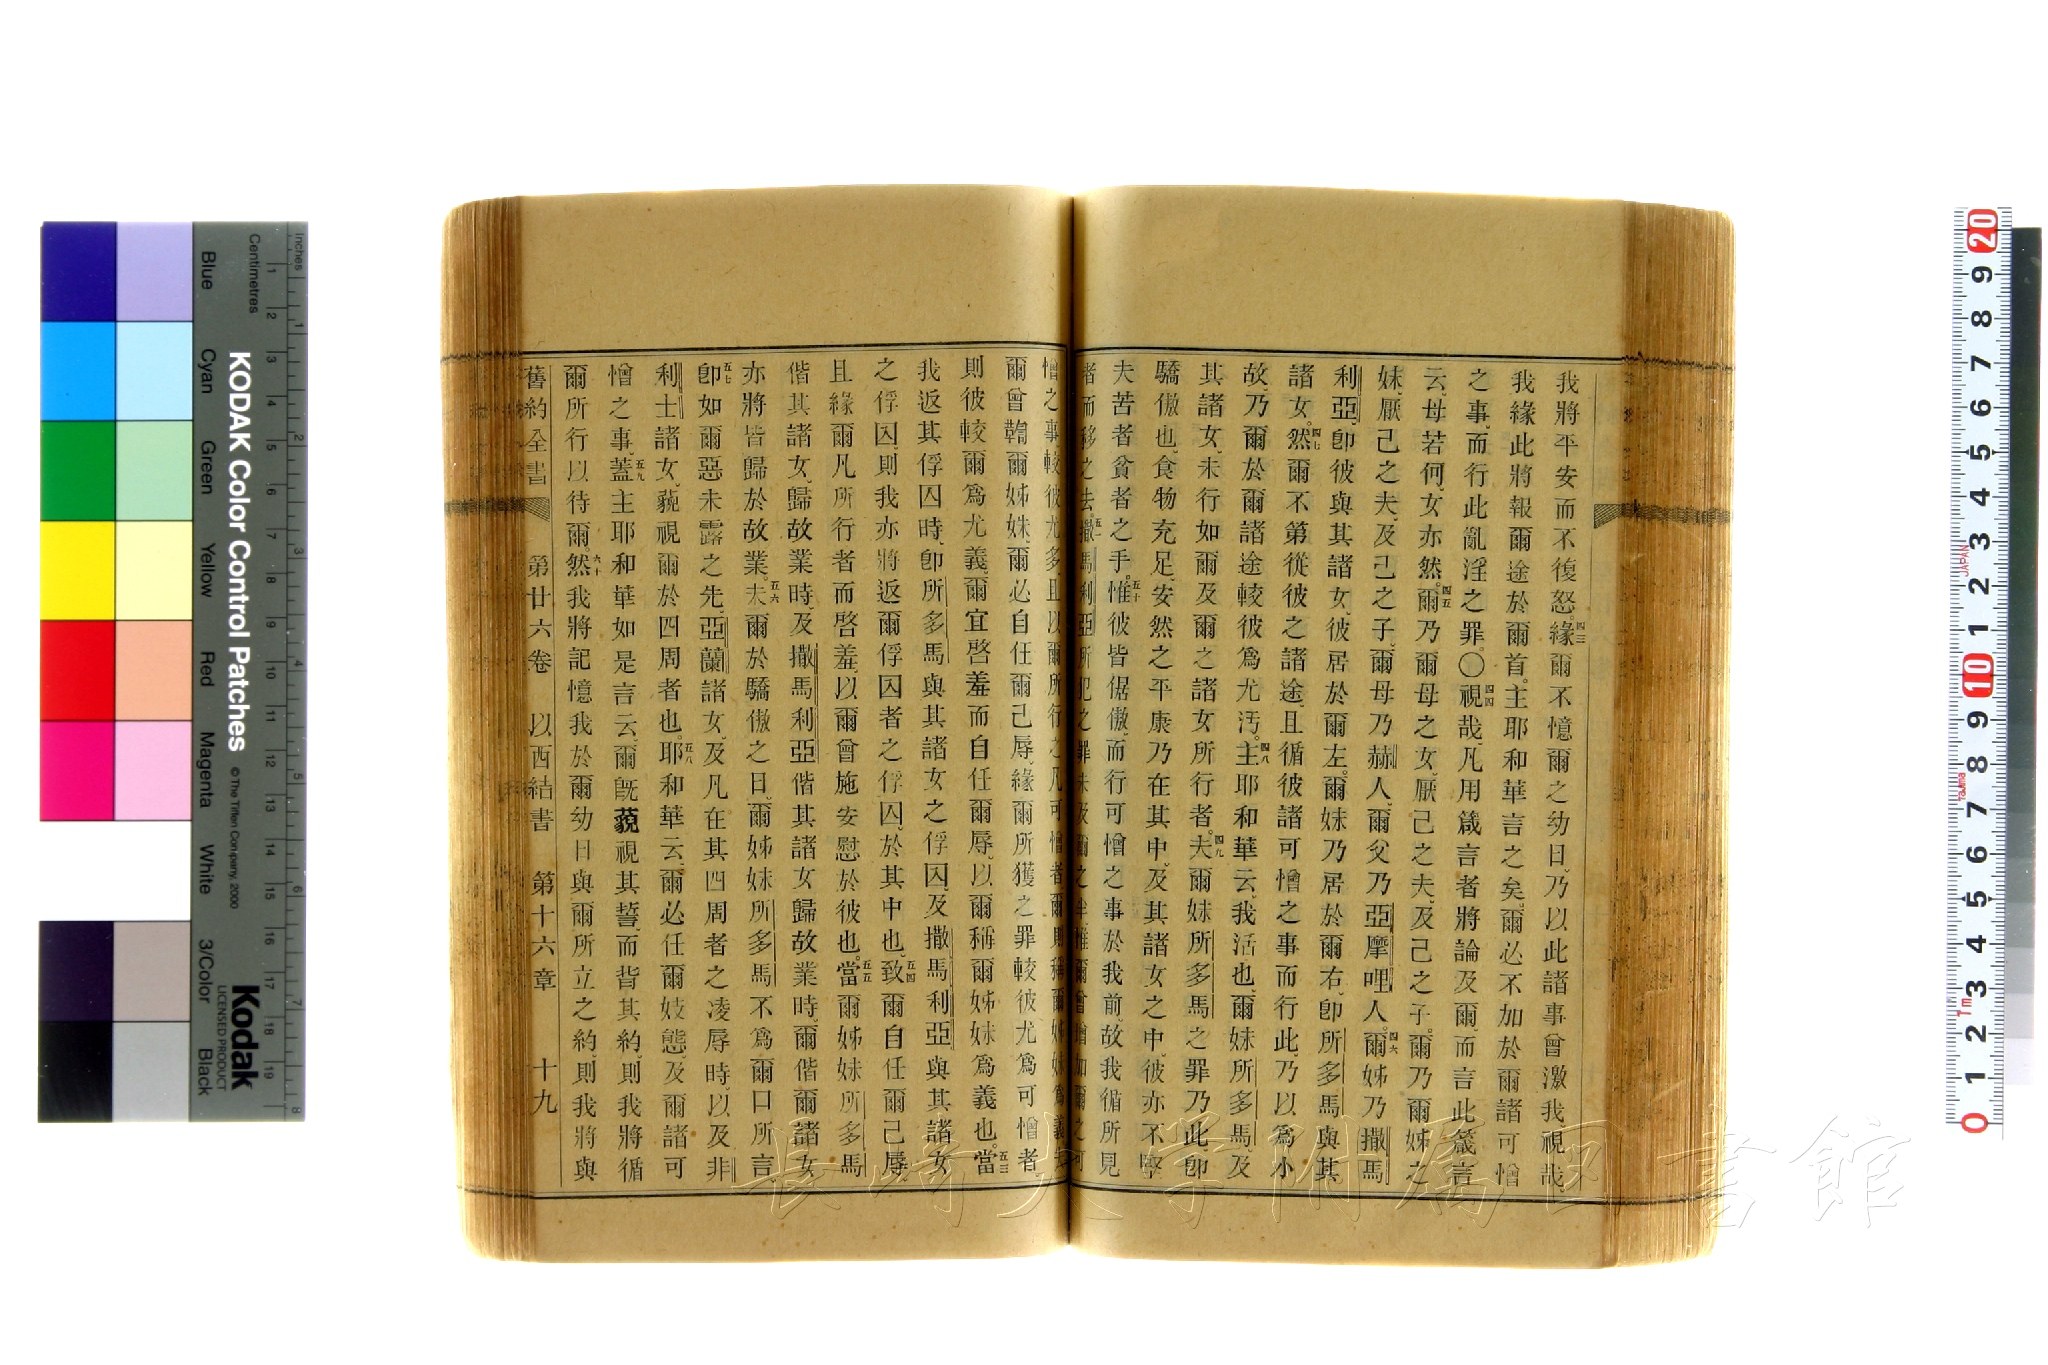 我將平安而不復怒、四三緣爾不憶爾之幼日、乃以此諸事曾激我、視哉、
我緣此將報爾途於爾首、主耶和華言之矣、爾必不加於爾諸可憎
之事、而行此亂淫之罪、〇四四視哉、凡用箴言者將論及爾、而言此箴言
云、母若何、女亦然、四五爾乃爾母之女、厭己之夫、及己之子、爾乃爾姊之
妹、厭己之夫、及己之子、爾母乃赫人、爾父乃亞摩哩人、四六爾姊乃撒馬
利亞、卽彼與其諸女、彼居於爾左、爾妹乃居於爾右、卽所多馬與其
諸女、四七然爾不第從彼之諸途、且循彼諸可憎之事而行此、乃以爲小
故、乃爾於爾諸途較彼爲尤汚、四八主耶和華云、我活也、爾妹所多馬、及
其諸女、未行如爾及爾之諸女所行者、四九夫爾妹所多馬之罪乃此、卽
驕傲也、食物充足、安然之平康乃在其中、及其諸女之中、彼亦不堅
夫苦者貧者之手、五十惟彼皆倨傲、而行可憎之事於我前、故我循所見
者而移之去、五一撒馬利亞所犯之罪未及爾之半、惟爾曾增加爾之可
憎之事、較彼尤多、且以爾所行之凡可憎者、爾則稱爾姊妹爲義、五二
爾曾斷爾姊妹、爾必自任爾己辱、緣爾所獲之罪較彼尤爲可憎者、
則彼較爾爲尤義、爾宜啓羞而自任爾辱、以爾稱爾姊妹爲義也、五三當
我返其俘囚時、卽所多馬與其諸女之俘囚、及撒馬利亞與其諸女
之俘囚、則我亦將返爾俘囚者之俘囚、於其中也、五四致爾自任爾己辱、
且緣爾凡所行者而啓羞、以爾曾施安慰於彼也、五五當爾姊妹所多馬
偕其諸女、歸故業時、及撒馬利亞偕其諸女歸故業時、爾偕爾諸女
亦將皆歸於故業、五六夫爾於驕傲之日、爾姊妹所多馬不爲爾口所言、
五七卽如爾惡未露之先、亞蘭諸女、及凡在其四周者之凌辱時、以及非
利士諸女、藐視爾於四周者也、五八耶和華云、爾必任爾妓態、及爾諸可
憎之事、五九蓋主耶和華如是言云、爾旣藐視其誓、而背其約、則我將循
爾所行以待爾、六十然我將記憶我於爾幼日與爾所立之約、則我將與
舊約全書 第廿六卷 以西結書 第十六章 十九
長崎大学附属図書館
KODAK Color Control Patches
© The Tiffen Company, 2000
Kodak
LICENSED PRODUCT
Blue Cyan Green Yellow Red Magenta White 3/Color Black
Inches 1 2 3 4 5 6 7 8
Centimetres 1 2 3 4 5 6 7 8 9 10 11 12 13 14 15 16 17 18 19
20 9 8 7 6 5 4 3 2 1 10 9 8 7 6 5 4 3 2 1 0
JAPAN Tajima 1m